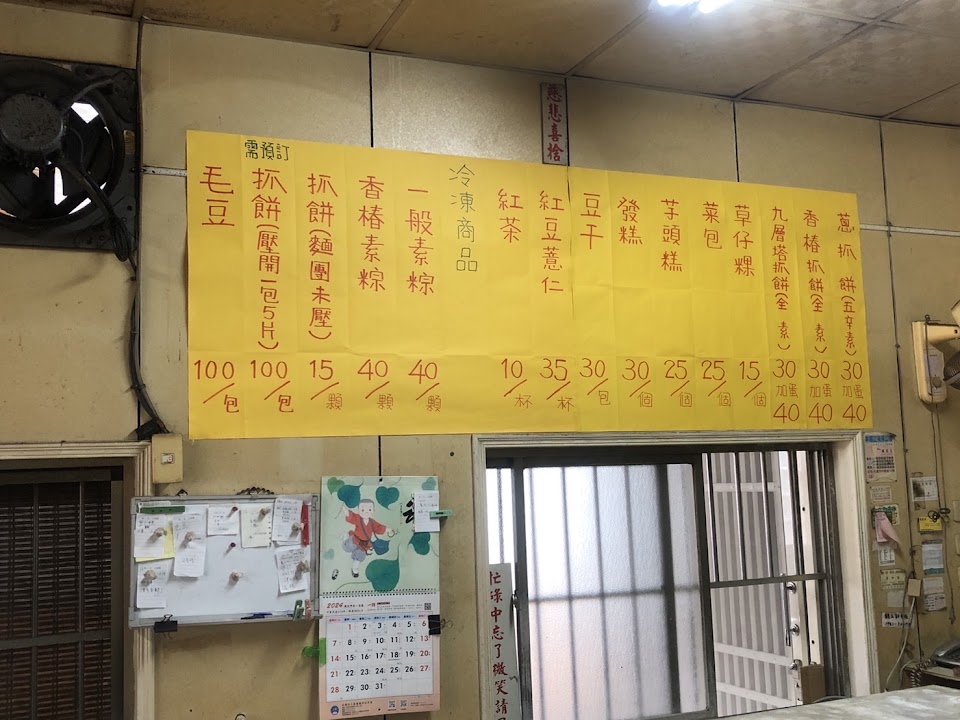 慈悲喜捨
蔥抓餅(五辛素) 30 加蛋 40
香椿抓餅(全素) 30 加蛋 40
九層塔抓餅(全素) 30 加蛋 40
草仔粿 15/個
菜包 25/個
芋頭糕 25/個
發糕 30/個
豆干 30/包
紅豆薏仁 35/杯
紅茶 10/杯
冷凍商品
一般素粽 40/顆
香椿素粽 40/顆
抓餅(麵團未壓) 15/顆
需預訂
抓餅(壓開一包5片) 100/包
毛豆 100/包
2024
1 2 3 4 5 6
7 8 9 10 11 12 13
14 15 16 17 18 19 20
21 22 23 24 25 26 27
28 29 30 31
忙碌中忘了微笑請